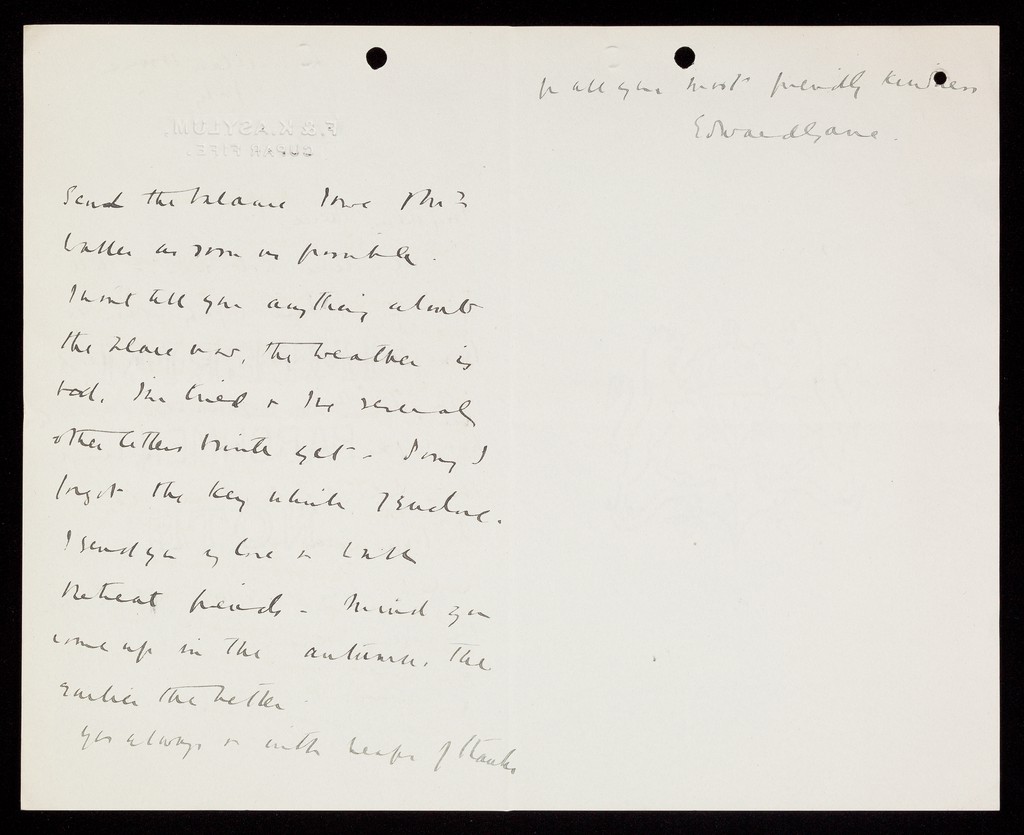 Send the balance I owe Mr
as soon as possible.
I won't tell you anything about
the place now, the weather is
bad, I'm tired & I've several
other letters to write yet - Sorry I
forgot the key which I enclose.
I send you my love &
Retreat friends - Mind you
come up in the autumn, the
earlier the better
yrs always & with heaps of thanks
for all your most friendly kindness
F. & K. ASYLUM,
CUPAR FIFE.